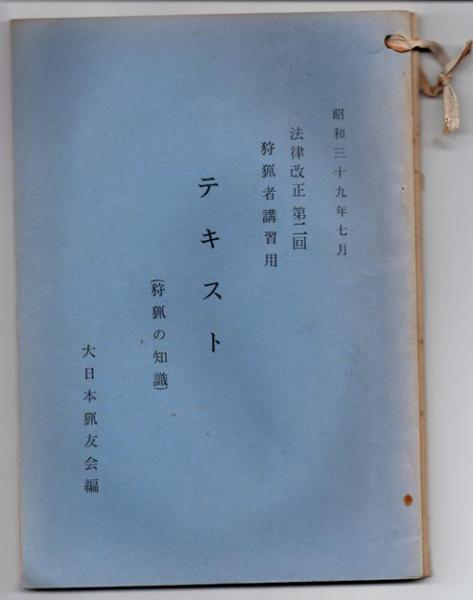 昭和三十九年七月
法律改正 第二回
狩猟者講習用
テキスト
(狩猟の知識)
大日本猟友会編